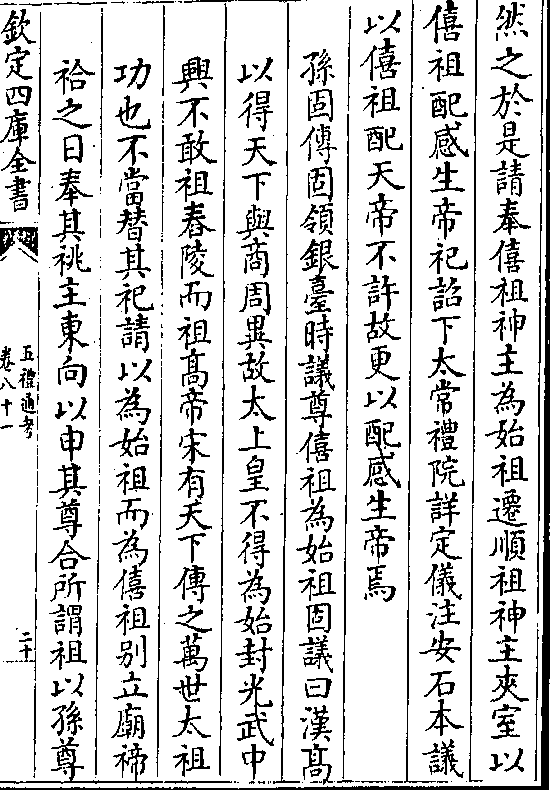 然之於是請奉僖祖神主為始祖遷順祖神主夾室以
僖祖配感生帝祀詔下太常禮院詳定儀注安石本議
以僖祖配天帝不許故更以配感生帝焉
孫固傳固領銀臺時議尊僖祖為始祖固議曰漢高
以得天下與商周異故太上皇不得為始封光武中
興不敢祖舂陵而祖高帝宋有天下傳之萬世太祖
功也不當替其祀請以為始祖而為僖祖别立廟禘
祫之日奉其祧主東向以申其尊合所謂祖以孫尊
欽定四庫全書
五禮通考
卷八十一
二十